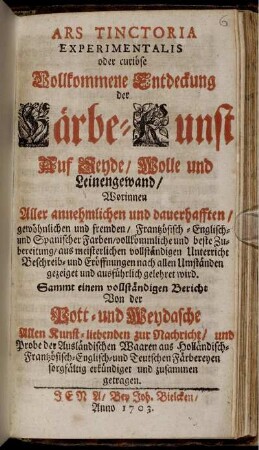 6
ARS TINCTORIA
EXPERIMENTALIS
oder curiöse
Vollkommene Entdeckung
der
Färbe-Kunst
Auf Seyde/ Wolle und
Leinengewand/
Worinnen
Aller annehmlichen und dauerhafften/
gewöhnlichen und fremden/ Frantzösisch-Englisch-
und Spanischer Farben/vollkommliche und beste Zu-
bereitung/aus meisterlichen vollständigen Unterricht
Beschreib- und Eröffnungen nach allen Umständen
gezeiget und ausführlich gelehret wird.
Sammt einem vollständigen Bericht
Von der
Pott- und Weydasche
Allen Kunst-liebenden zur Nachricht/ und
Probe der Ausländischen Waaren aus Holländisch-
Frantzösisch-Englisch-und Teutschen Färbereyen
sorgfältig erkündiget und zusammen
getragen.
JENA/ Bey Joh. Bielcken/
Anno 1703.